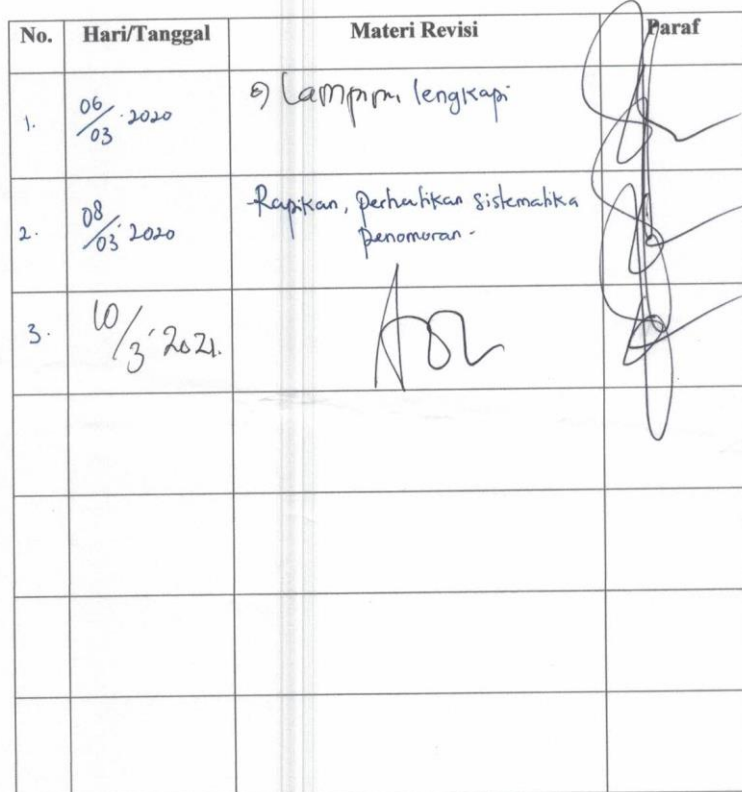 No. Hari/Tanggal Materi Revisi Paraf
1. 06/03.2020 lengkapi
2. 08/03.2020 Rapikan, perhatikan sistematika
penomoran-
3. 10/3.2021.